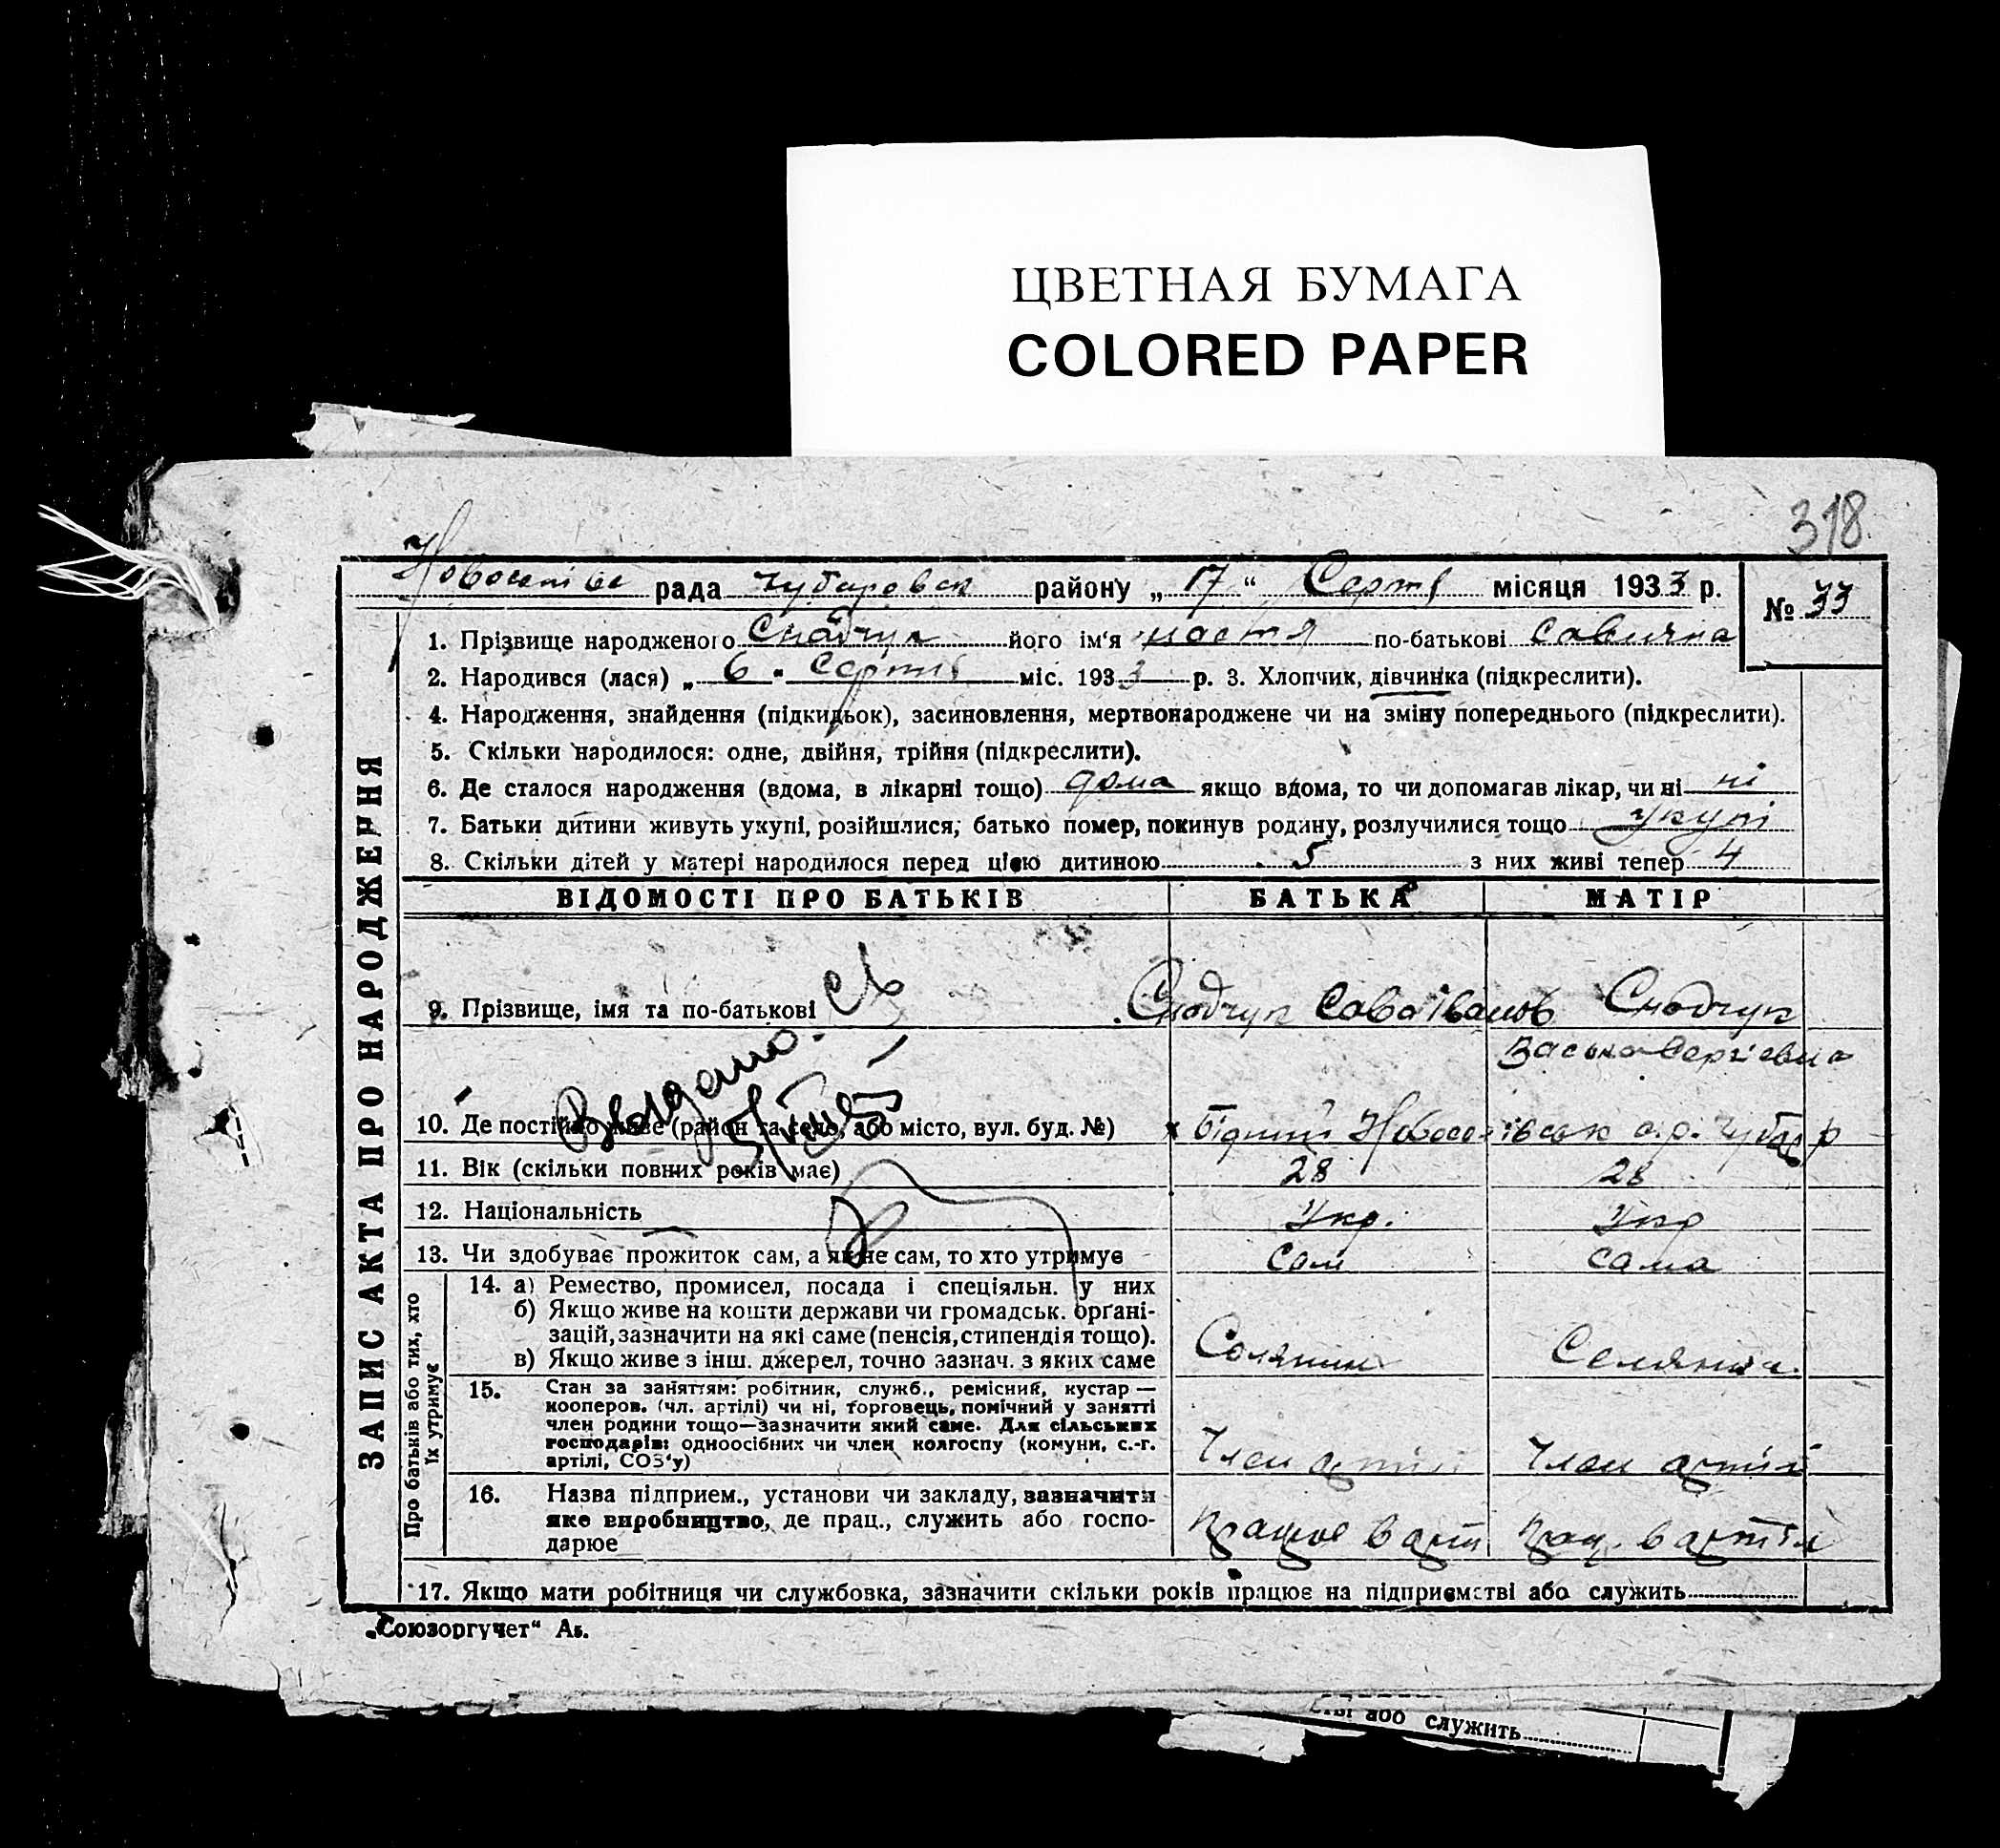 ЦВЕТНАЯ БУМАГА
COLORED PAPER
318
рада Чубаревск району „17“ Серпн місяця 1933 р.
№ 33
ЗАПИС АКТА ПРО НАРОДЖЕННЯ
1. Прізвище народженого його ім‘я Настя по-батькові Савична
2. Народився (лася) „ 6 “ Серпня міс. 1933 р. 3. Хлопчик, дівчинка (підкреслити).
4. Народження, знайдення (підкидьок), засиновлення, мертвонароджене чи на зміну попереднього (підкреслити).
5. Скільки народилося: одне, двійня, трійня (підкреслити).
6. Де сталося народження (вдома, в лікарні тощо) дома якщо вдома, то чи допомагав лікар, чи ні ні
7. Батьки дитини живуть укупі, розійшлися, батько помер, покинув родину, розлучилися тощо укупі
8. Скільки дітей у матері народилося перед цією дитиною 5 з них живі тепер 4
ВІДОМОСТІ ПРО БАТЬКІВ БАТЬКА МАТІР
9. Прізвище, імя та по-батькові Сава Іванов
Сергієвна
10. Де постійно живе (район та село, або місто, вул. буд. №)
11. Вік (скільки повних років має) 28 28
12. Національність Укр. Укр
13. Чи здобуває прожиток сам, а як не сам, то хто утримує сам сама
Про батьків або тих, хто їх утримує
14. а) Ремество, промисел, посада і спеціяльн. у них
б) Якщо живе на кошти держави чи громадськ. орґані-
зацій, зазначити на які саме (пенсія, стипендія тощо).
в) Якщо живе з інш. джерел, точно зазнач. з яких саме Солянин Селянка
15. Стан за заняттям: робітник, служб., ремісник, кустар —
кооперов. (чл. артілі) чи ні, торговець, помічний у занятті
член родини тощо—зазначити який саме. Для сільських
господарів: одноосібних чи член колгоспу (комуни, с.-г.
артілі, СОЗ‘у) Член артіл Член артіл
16. Назва підприєм., установи чи закладу, зазначити
яке виробництво, де прац., служить або госпо-
дарює Працює в арт Прац. в артіл
17. Якщо мати робітниця чи службовка, зазначити скільки років працює на підприємстві або служить
„Союзоргучет“ Аз.
або служить